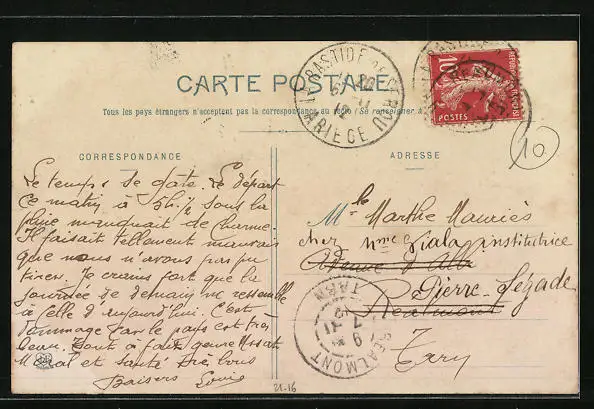 CARTE POSTALE
Tous les pays étrangers n'acceptent pas la correspondance au recto (Se renseigner à
CORRESPONDANCE
ADRESSE
Le temps se gâte. Le départ
ce matin à 5h ½ sous la
pluie manquait de charme.
Il faisait tellement mauvais
que nous n'avons pas pu
tirer. Je crains fort que la
journée de demain ne ressemble
à celle d'aujourd'hui. C'est
dommage car le pays est très
beau. Tout à fait genre
Moral et santé très bons
Baisers Louis
Mlle Marthe Mauriès
chez Mme Viala institutrice
Avenue d'Albi
Pierre-Ségade
Réalmont
Tarn
LA BASTIDE DE SEROU
ARIEGE
REALMONT
TARN
10
POSTES
10
21-16